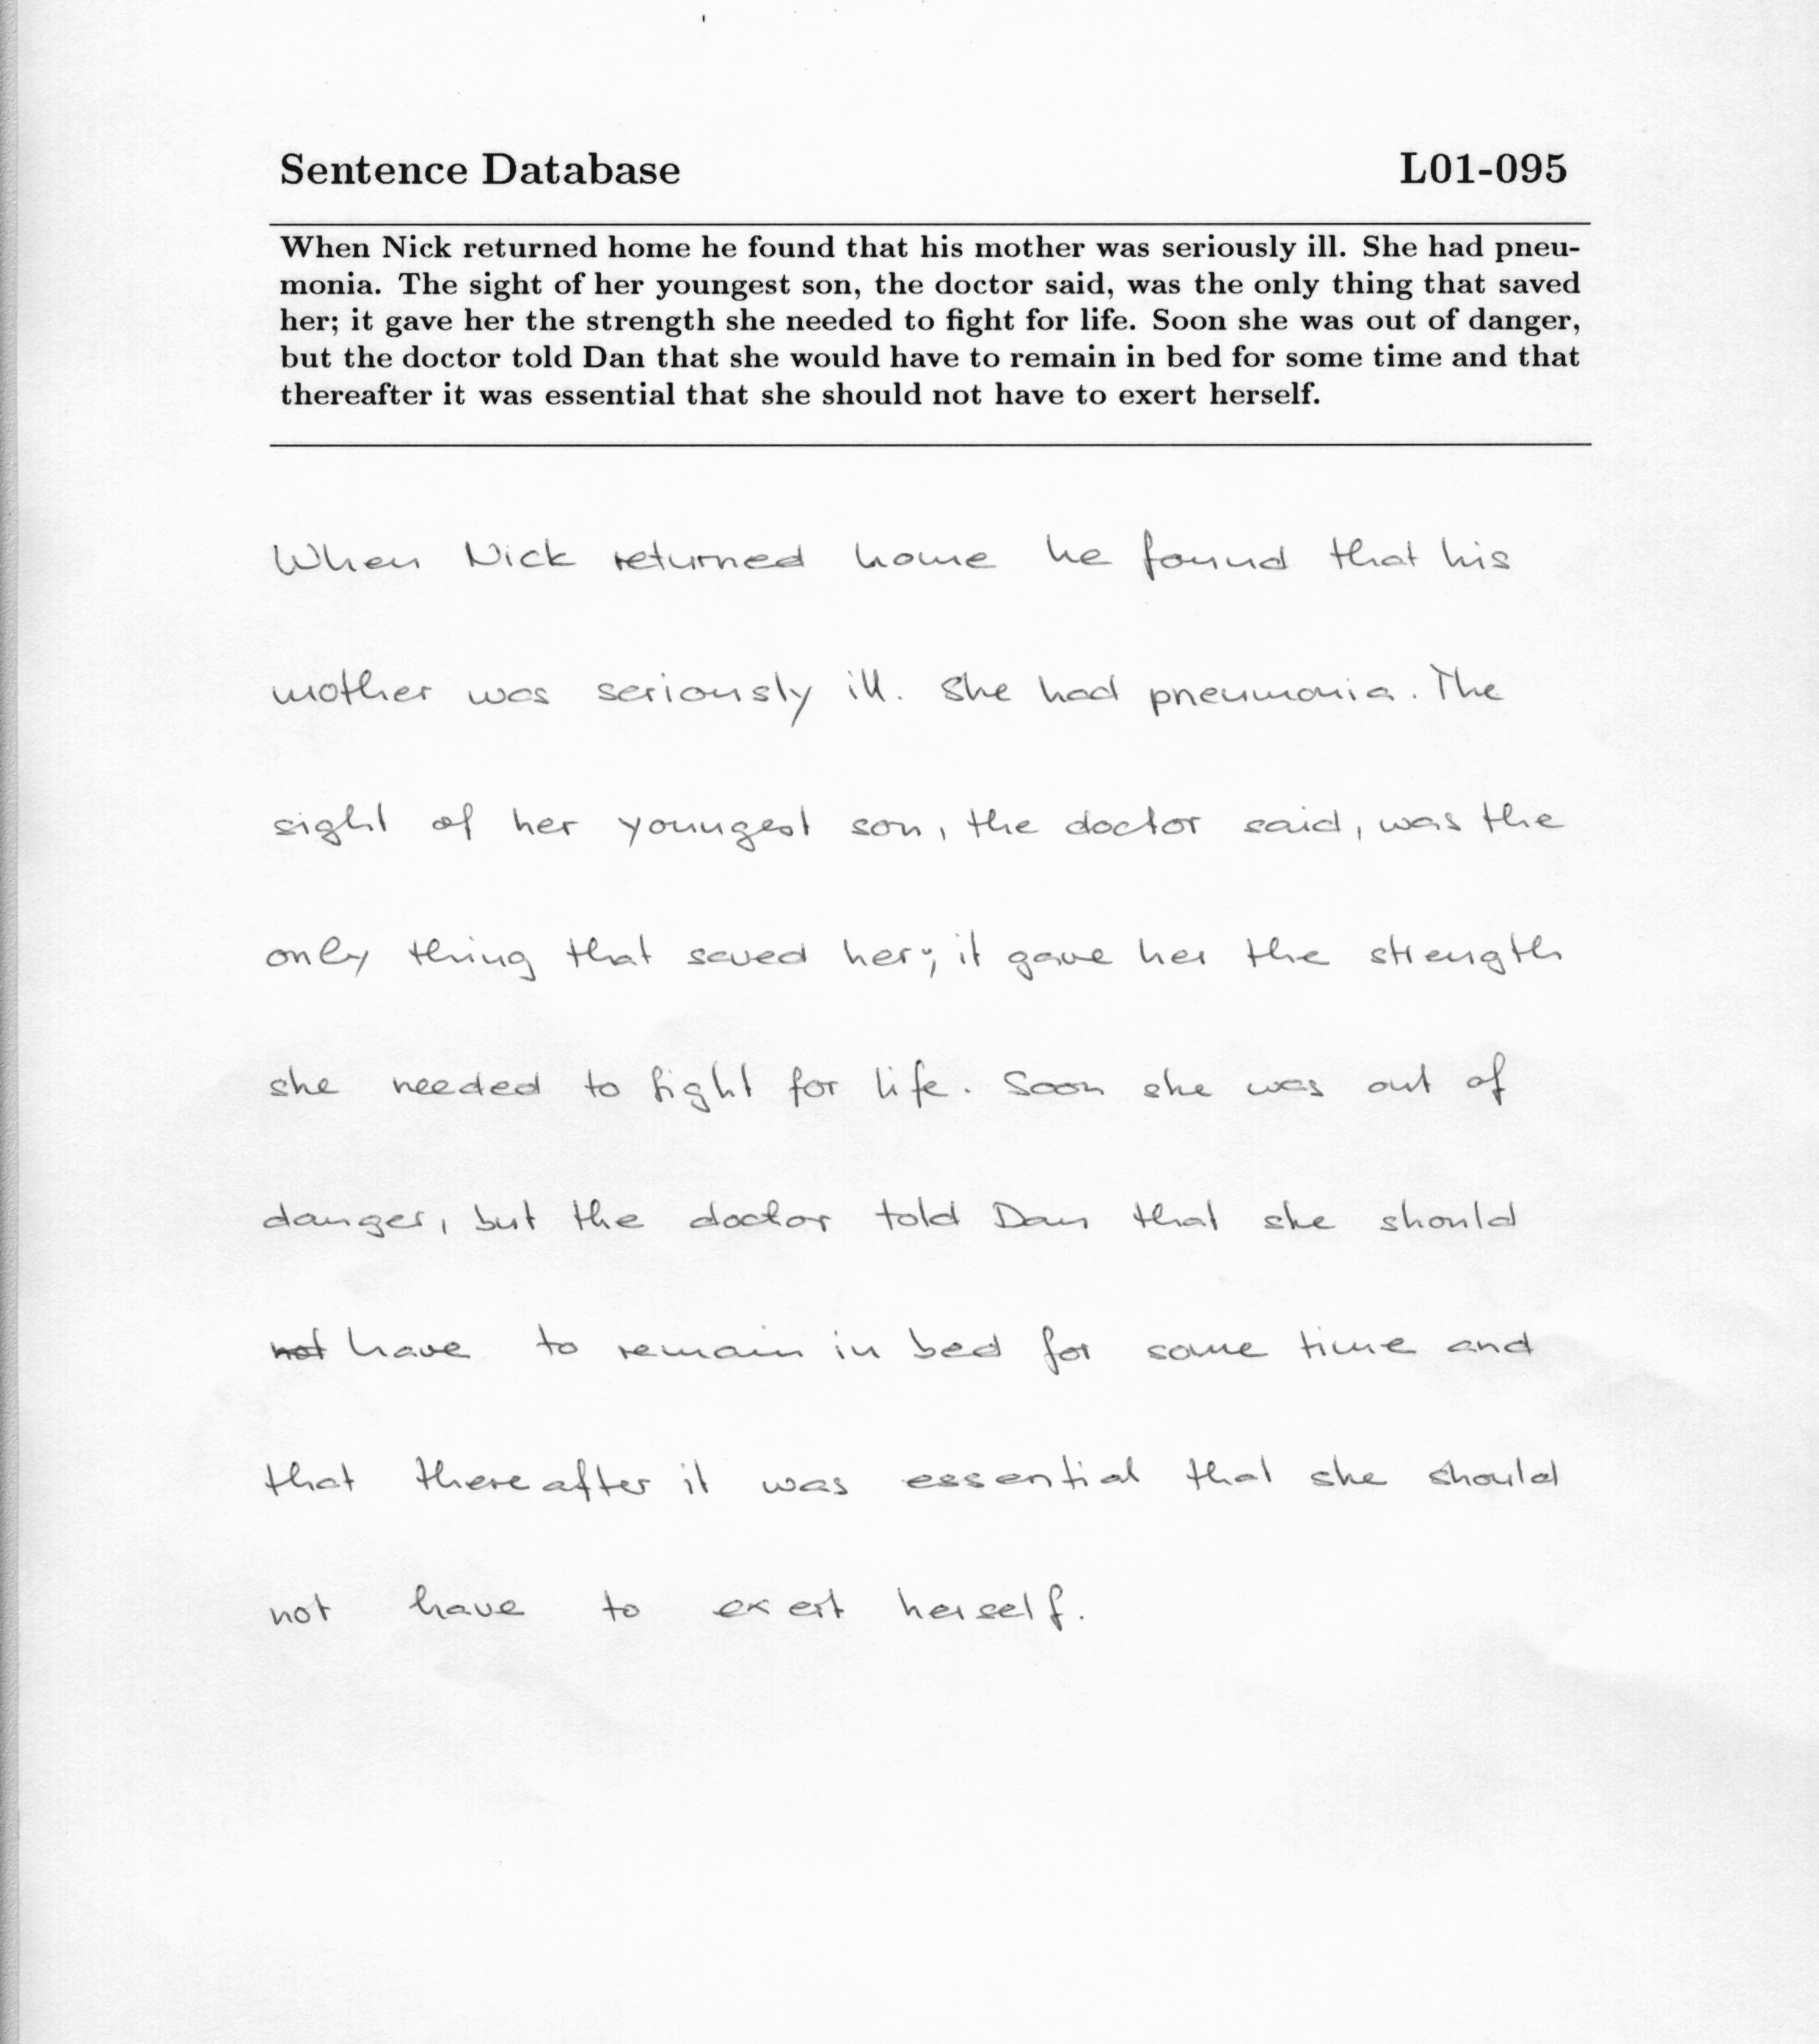 Sentence Database L01-095
When Nick returned home he found that his mother was seriously ill. She had pneu-
monia. The sight of her youngest son, the doctor said, was the only thing that saved
her; it gave her the strength she needed to fight for life. Soon she was out of danger,
but the doctor told Dan that she would have to remain in bed for some time and that
thereafter it was essential that she should not have to exert herself.
When Nick returned home he found that his
mother was seriously ill. She had pneumonia. The
sight of her youngest son, the doctor said, was the
only thing that saved her; it gave her the strength
she needed to fight for life. Soon she was out of
danger, but the doctor told Dan that she should
not have to remain in bed for some time and
that thereafter it was essential that she should
not have to exert herself.